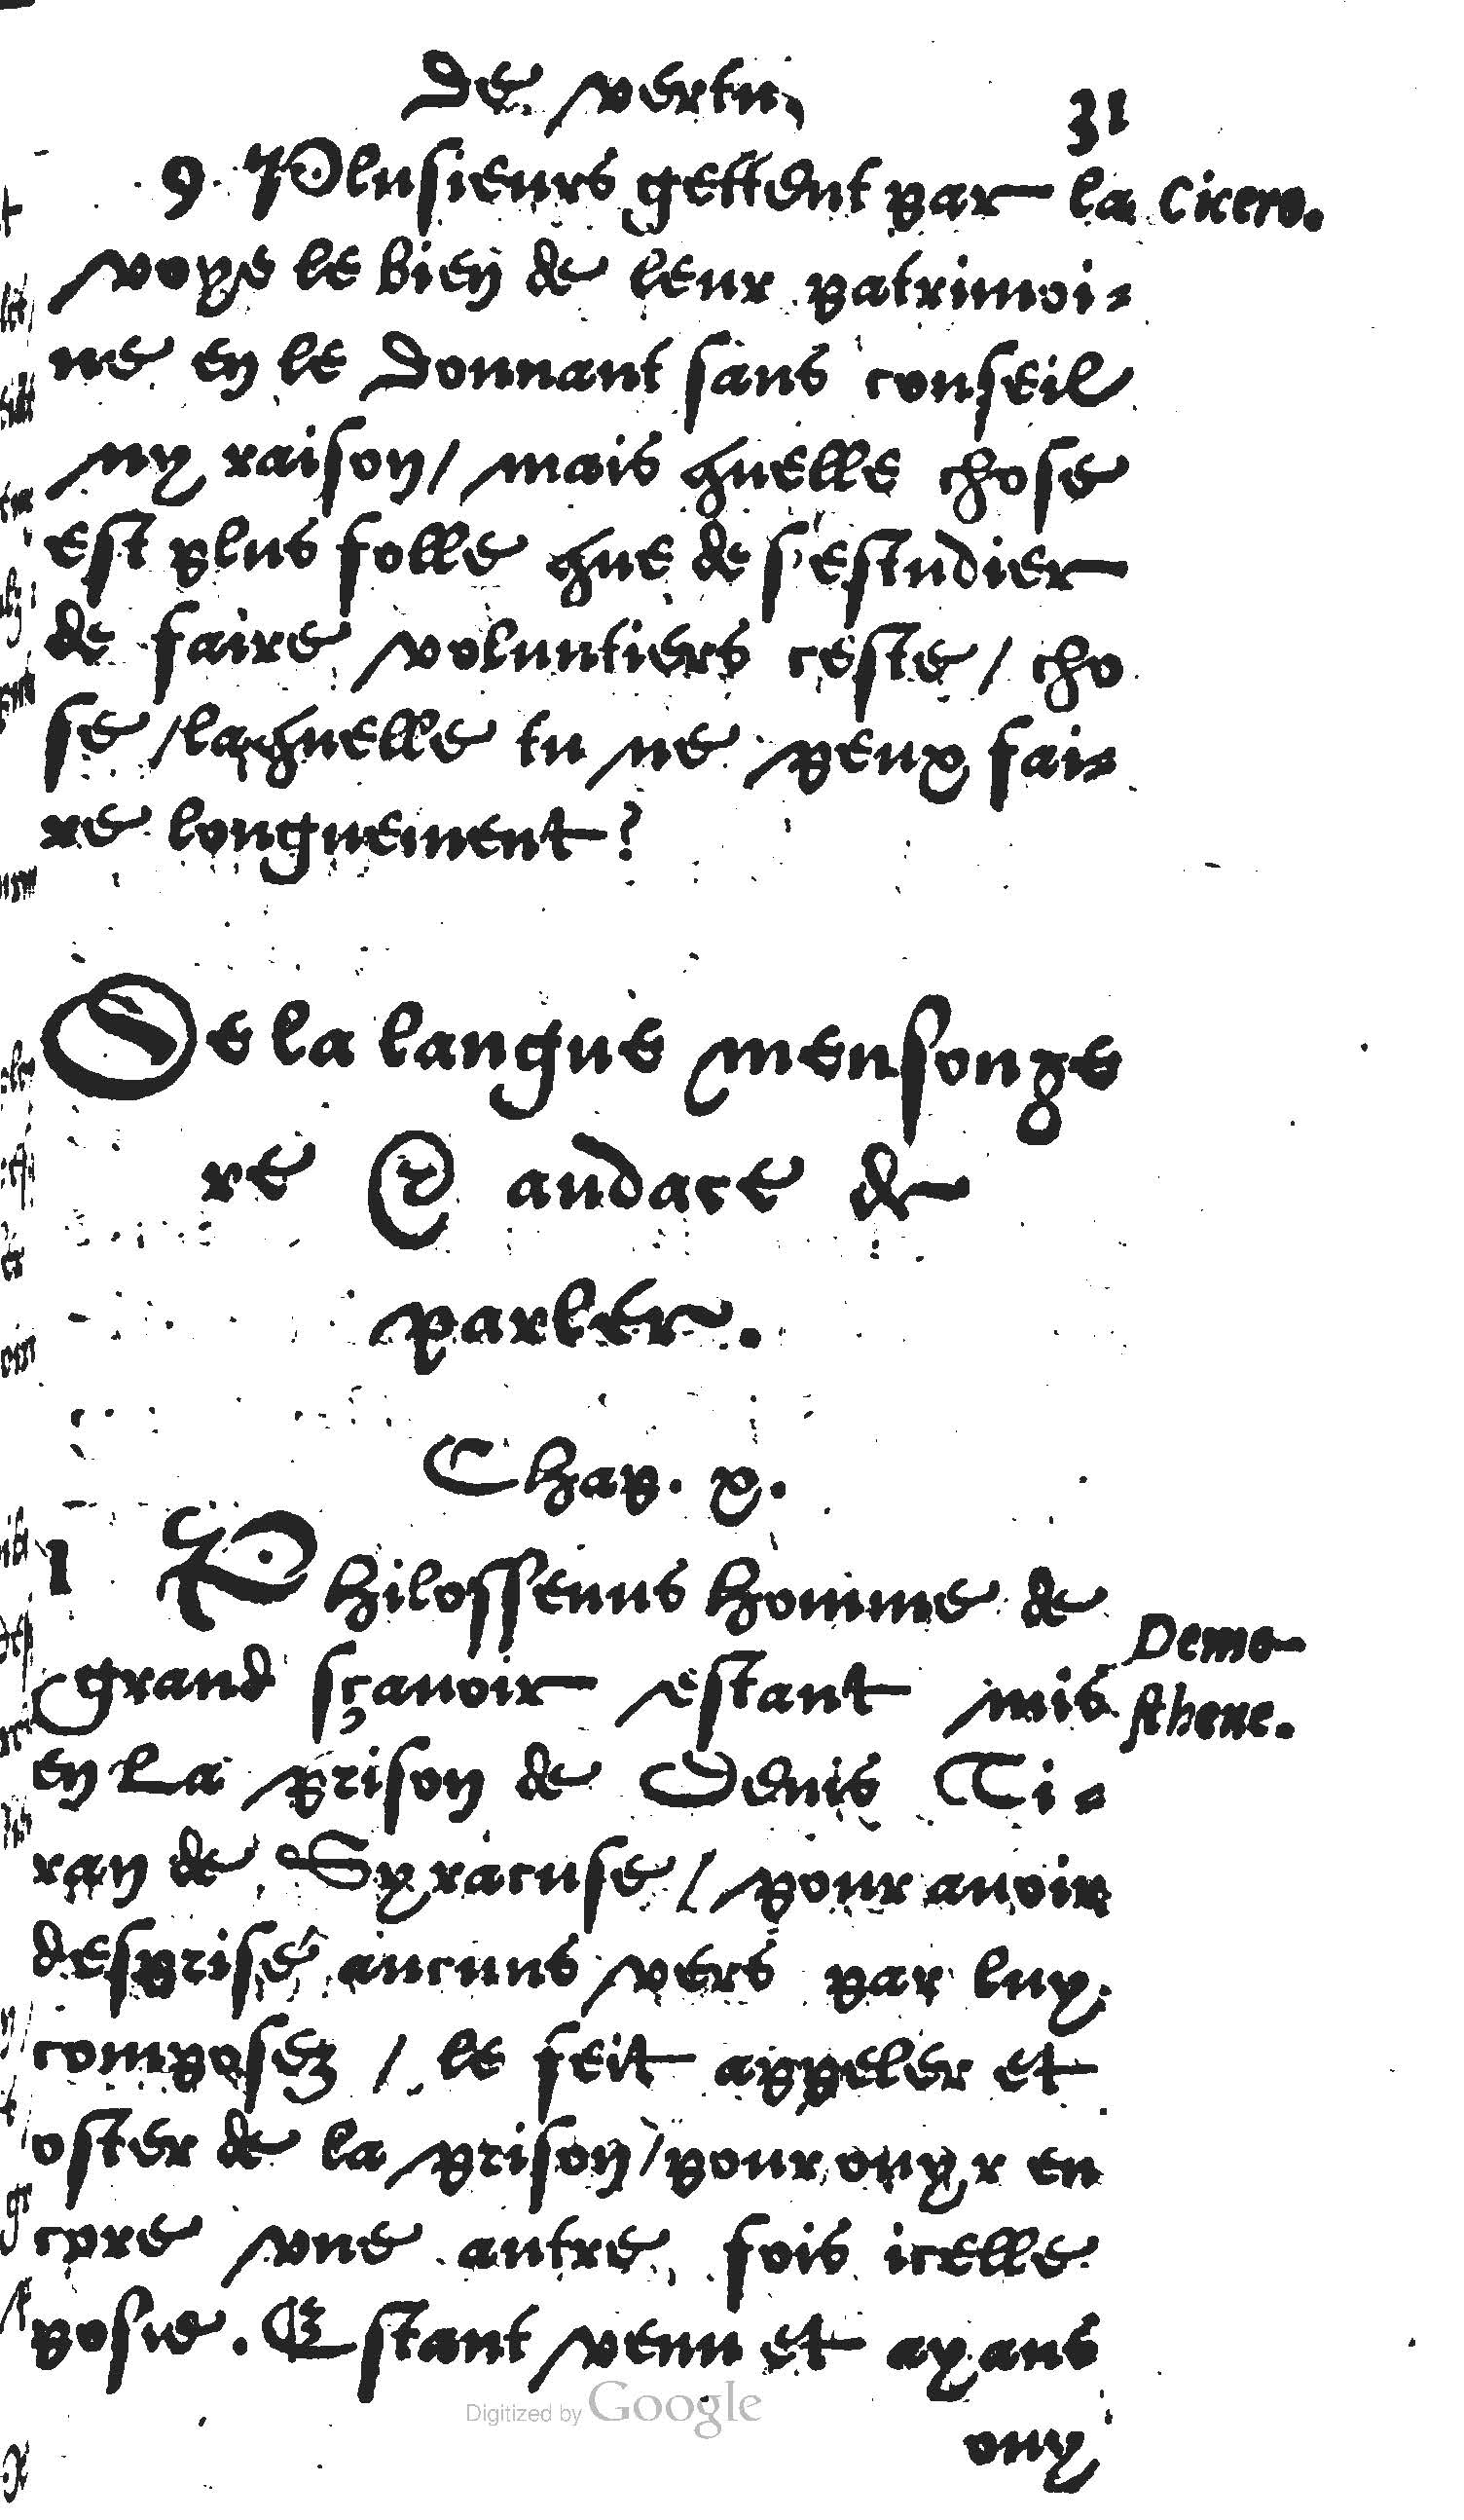 De vertu, 31
9 Plusieurs gettent par la Cicero.
voye le bien de leur patrimoi-
ne en le donnant sans conseil
ny raison/ mais quelle chose
est plus folle que de s'estudier
de faire voluntiers ceste / cho
se / laquelle tu ne peux fai-
re longuement?
De la langue mensonge
re & audace de
parler.
Chap. x.
1 Philossenus homme de
grand sçavoir estant mis Demo-
en la prison de Denis Ti- sthene.
ran de Syracuse / pour avoir
desprisé aucuns vers par luy
composez / le feit appeler et
oster de la prison / pour ouyr en
core une autre fois icelle
posie. Estant venu et ayans
ouy
Digitized by Google